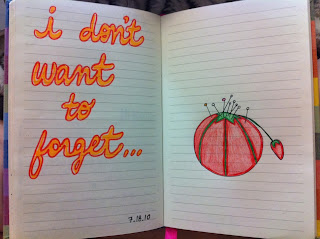 i don't
want
to
forget...
7.18.10